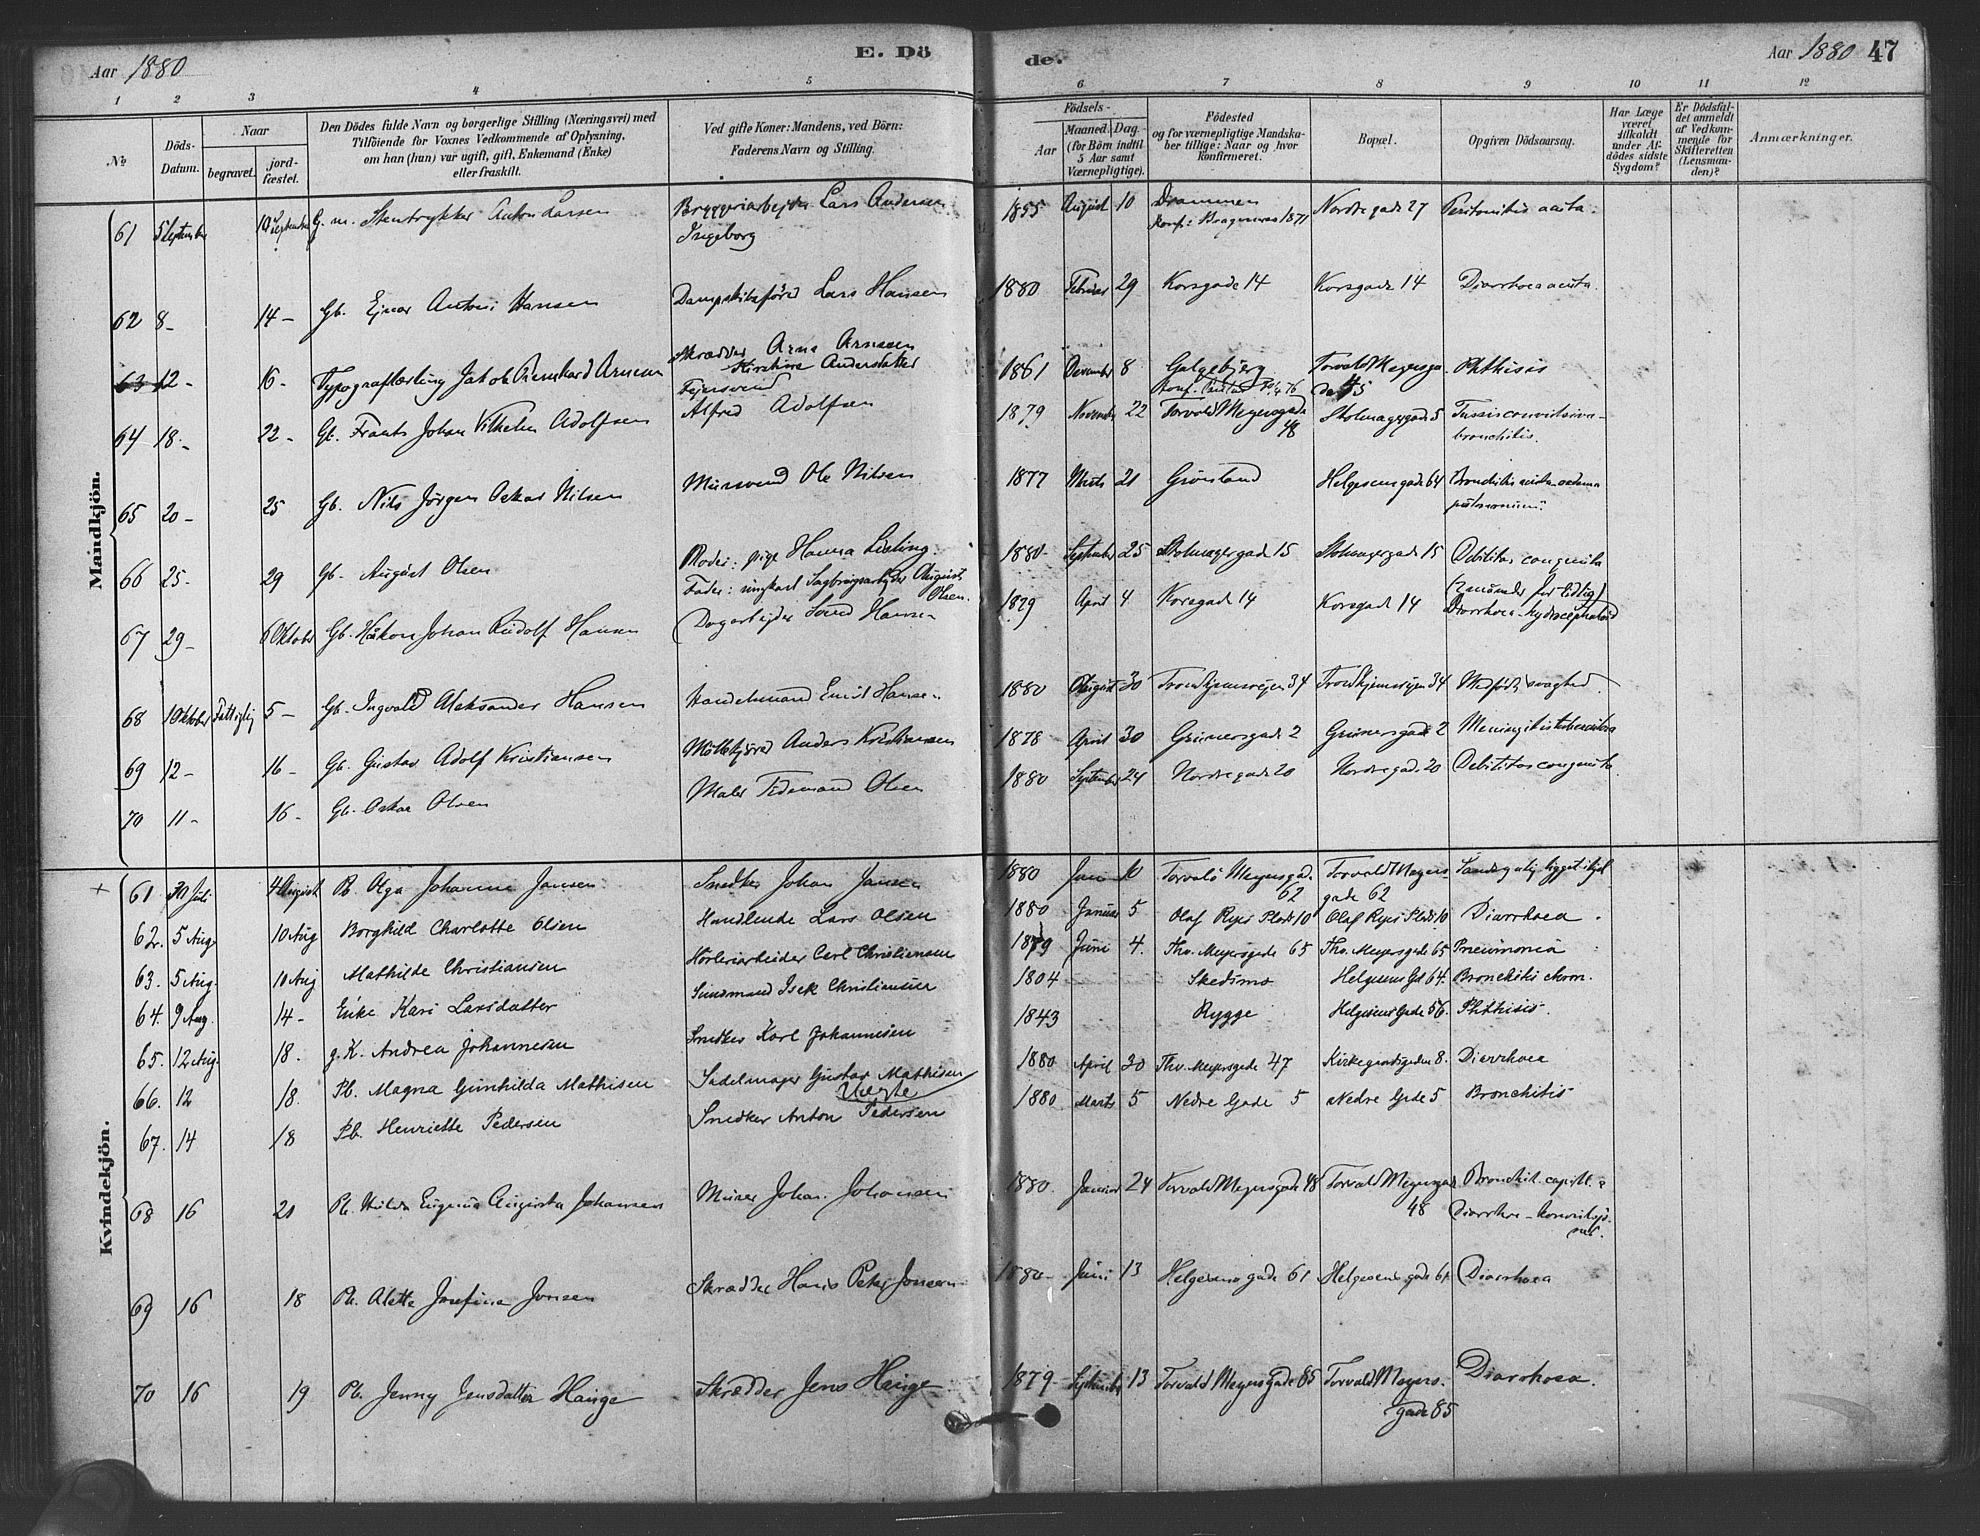 Aar 1880
E. Dö
de.
Aar 1880 47
1 2 3 4 5 6 7 8 9 10 11 12
№
Döds-
Datum.
Naar
begravet.
jord-
fæstet.
Den Dödes fulde Navn og borgerlige Stilling (Næringsvei) med
Tilföiende for Voxnes Vedkommende af Oplysning,
om han (hun) var ugift, gift, Enkemand (Enke)
eller fraskilt.
Ved gifte Koner: Mandens, ved Börn:
Faderens Navn og Stilling.
Födsels-
Aar
Maaned. Dag.
(for Börn indtil
5 Aar samt
Værnepligtige).
Födested
og for værnepligtige Mandska-
ber tillige: Naar og hvor
konfirmeret.
Bopæl.
Opgiven Dödsaarsag.
Har Læge
været
tilkaldt
under Af-
dödes sidste
Sygdom?
Er Dödsfal-
det anmeldt
af Vedkom-
mende for
Skifteretten
(Lensman-
den)?
Anmærkninger.
Mandkjön.
61 5 September 10 September G. m. Stentrykker Anton Larsen Bryggeriarbejder Lars Andersen 1855 August 10 Drammen Nordregade 27 Peritonitis acuta.
Ingeborg Konf: Bragernes 1871
62 8- 14- Gb. Ejnar Antoni Hansen Dampskibsfører Lars Hansen 1880 Februar 29 Korsgade 14 Korsgade 14 Diarrhoea acuta.
63 12- 16- Typograflærling Jakob Arnsen Skrædder Arne Arnsen 1861 December 8 Galgebjerg Torvald Meyersga- Phthisis
Kirstine Andersdatter
de 45
64 18- 22- Gb. Frants Johan Vilhelm Adolfsen Alfred Adolfsen 1879 November 22 Torvald Meyersgade Skolmagergade 5 Tussis convulsiva-
48 bronchitis.
65 20- 25 Gb. Nils Jörgen Oskar Nilsen Mursvend Ole Nilsen 1877 Marts 21 Grönland Helgesensgade 64 Bronchitis acuta-oedema
pulmonum.
66 25- 29 Gb. August Olsen Moder: pige Hanna 1880- September 25 Skolmagergade 15 Skolmagergade 15 Debilitas congenita
Fader: ungkarl Sagbrugsarbejder August Olsen. (2 måneder for tidlig)
67 29- 6 Oktober Gb. Håkon Johan Rudolf Hansen Dagarbejder Hansen 1879 April 4 Korsgade 14 Korsgade 14 Diarrhoea-hydrocephaloid
68 1 Oktober Fattigvis 5- Gb. Ingvald Aleksander Hansen Handelsmand Emil Hansen 1880 August 30 Trondhjemsvejen 34 Trondhjemsvejen 34 Medfödt svaghed.
69 12- 16- Gb. Gustav Adolf Kristiansen Anders Kristiansen 1878 April 30 Grünersgade 2 Grünersgade 2 Meningitis tuberculosa
70 11- 16- Gb. Oskar Olsen Maler Tidemand Olsen 1880 September 24 Nordregade 20 Nordregade 20 Debilitas congenita
Kvindekjön.
61 30 Juli 4 August Pb. Olga Johanne Jansen Snedker Johan Jansen 1880 Juni 10 Torvald Meyersgade Torvald Meyers- Sandsynlig ligget ihjel
62 gade 62
62. 5 Aug. 10 Aug Borghild Charlotte Olsen Handlende Lars Olsen 1880 Januar 5 Olaf Ryes Plads 10 Olaf Ryes Plads 10 Diarrhoea.
63. 5 Aug. 10 Aug Mathilde Christiansen Carl Christiansen 1879 Juni 4. Thv. Meyersgade 65 Thv. Meyersgade 65 Pneumonia
64. 9 Aug. 14- Enke Kari Larsdatter Isak Christiansen 1804 Skedsmo Helgesens Gd 64. Bronchitis chron.
65. 12 Aug. 18. g. K. Andrea Johannesen Snedker Karl Johannesen 1843 Rygge Helgesens Gade 56. Phthisis.
66. 12 18. Pb. Magna Gunhilda Mathisen Sadelmager Gustav Mathisen 1880 April 30 Thv. Meyersgade 47 Kirkegaardsgaden 8. Diarrhoea
67. 14 18 Pb. Henriette Pedersen Snedker Anton Pedersen 1880 Marts 5 Nedre Gade 5 Nedre Gade 5 Bronchitis
68 16 21 Pb. Hulda Eugenia Augusta Johansen Murer Johan Johansen 1880 Januar 24 Torvald Meyersgade 48 Torvald Meyersgade Bronchit. capill.
48 Diarrhoe-
69 16 18 Pb. Alette Josefine Jonsen Skrædder Hans Peter Jonsen 1880- Juni 13 Helgesens gade 61 Helgesens gade 61 Diarrhoea
70 16 19 Pb. Jenny Jensdatter Hauge Skrædder Jens Hauge 1879 September 13 Torvald Meyersgade 85 Torvald Meyers. Diarrhoea.
gade 85